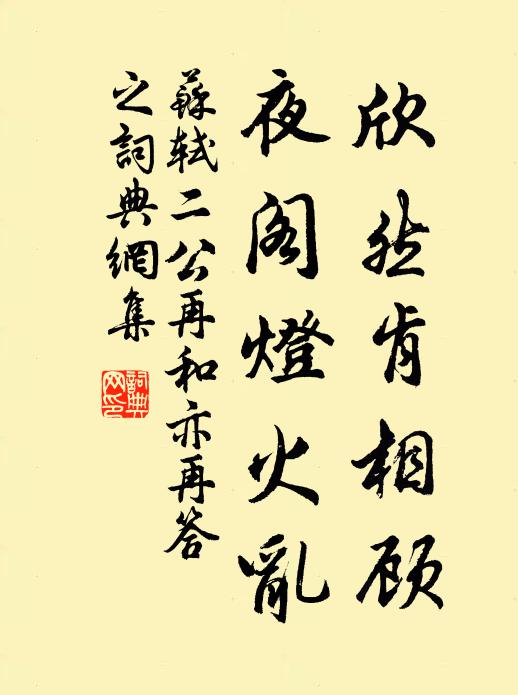 欣然肯相顾
夜阁燈火亂
蘇軾二公再和亦再答
之詞典網集
詞典
网印